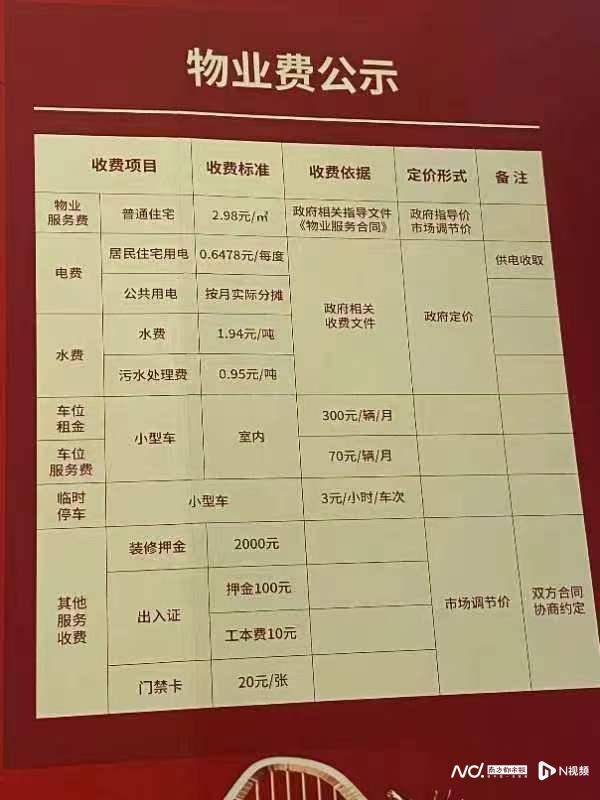 物业费公示
收费项目 收费标准 收费依据 定价形式 备注
物业
服务费
普通住宅 2.98元/㎡
政府相关指导文件
《物业服务合同》
政府指导价
市场调节价
电费
居民住宅用电 0.6478元/每度
供电收取
公共用电 按月实际分摊
政府相关
收费文件
政府定价
水费
水费 1.94元/吨
污水处理费 0.95元/吨
车位
租金
小型车 室内
300元/辆/月
车位
服务费
70元/辆/月
临时
停车
小型车 3元/小时/车次
其他
服务
收费
装修押金 2000元
出入证
押金100元
工本费10元
门禁卡 20元/张
市场调节价
双方合同
协商约定
南方都市报
N视频